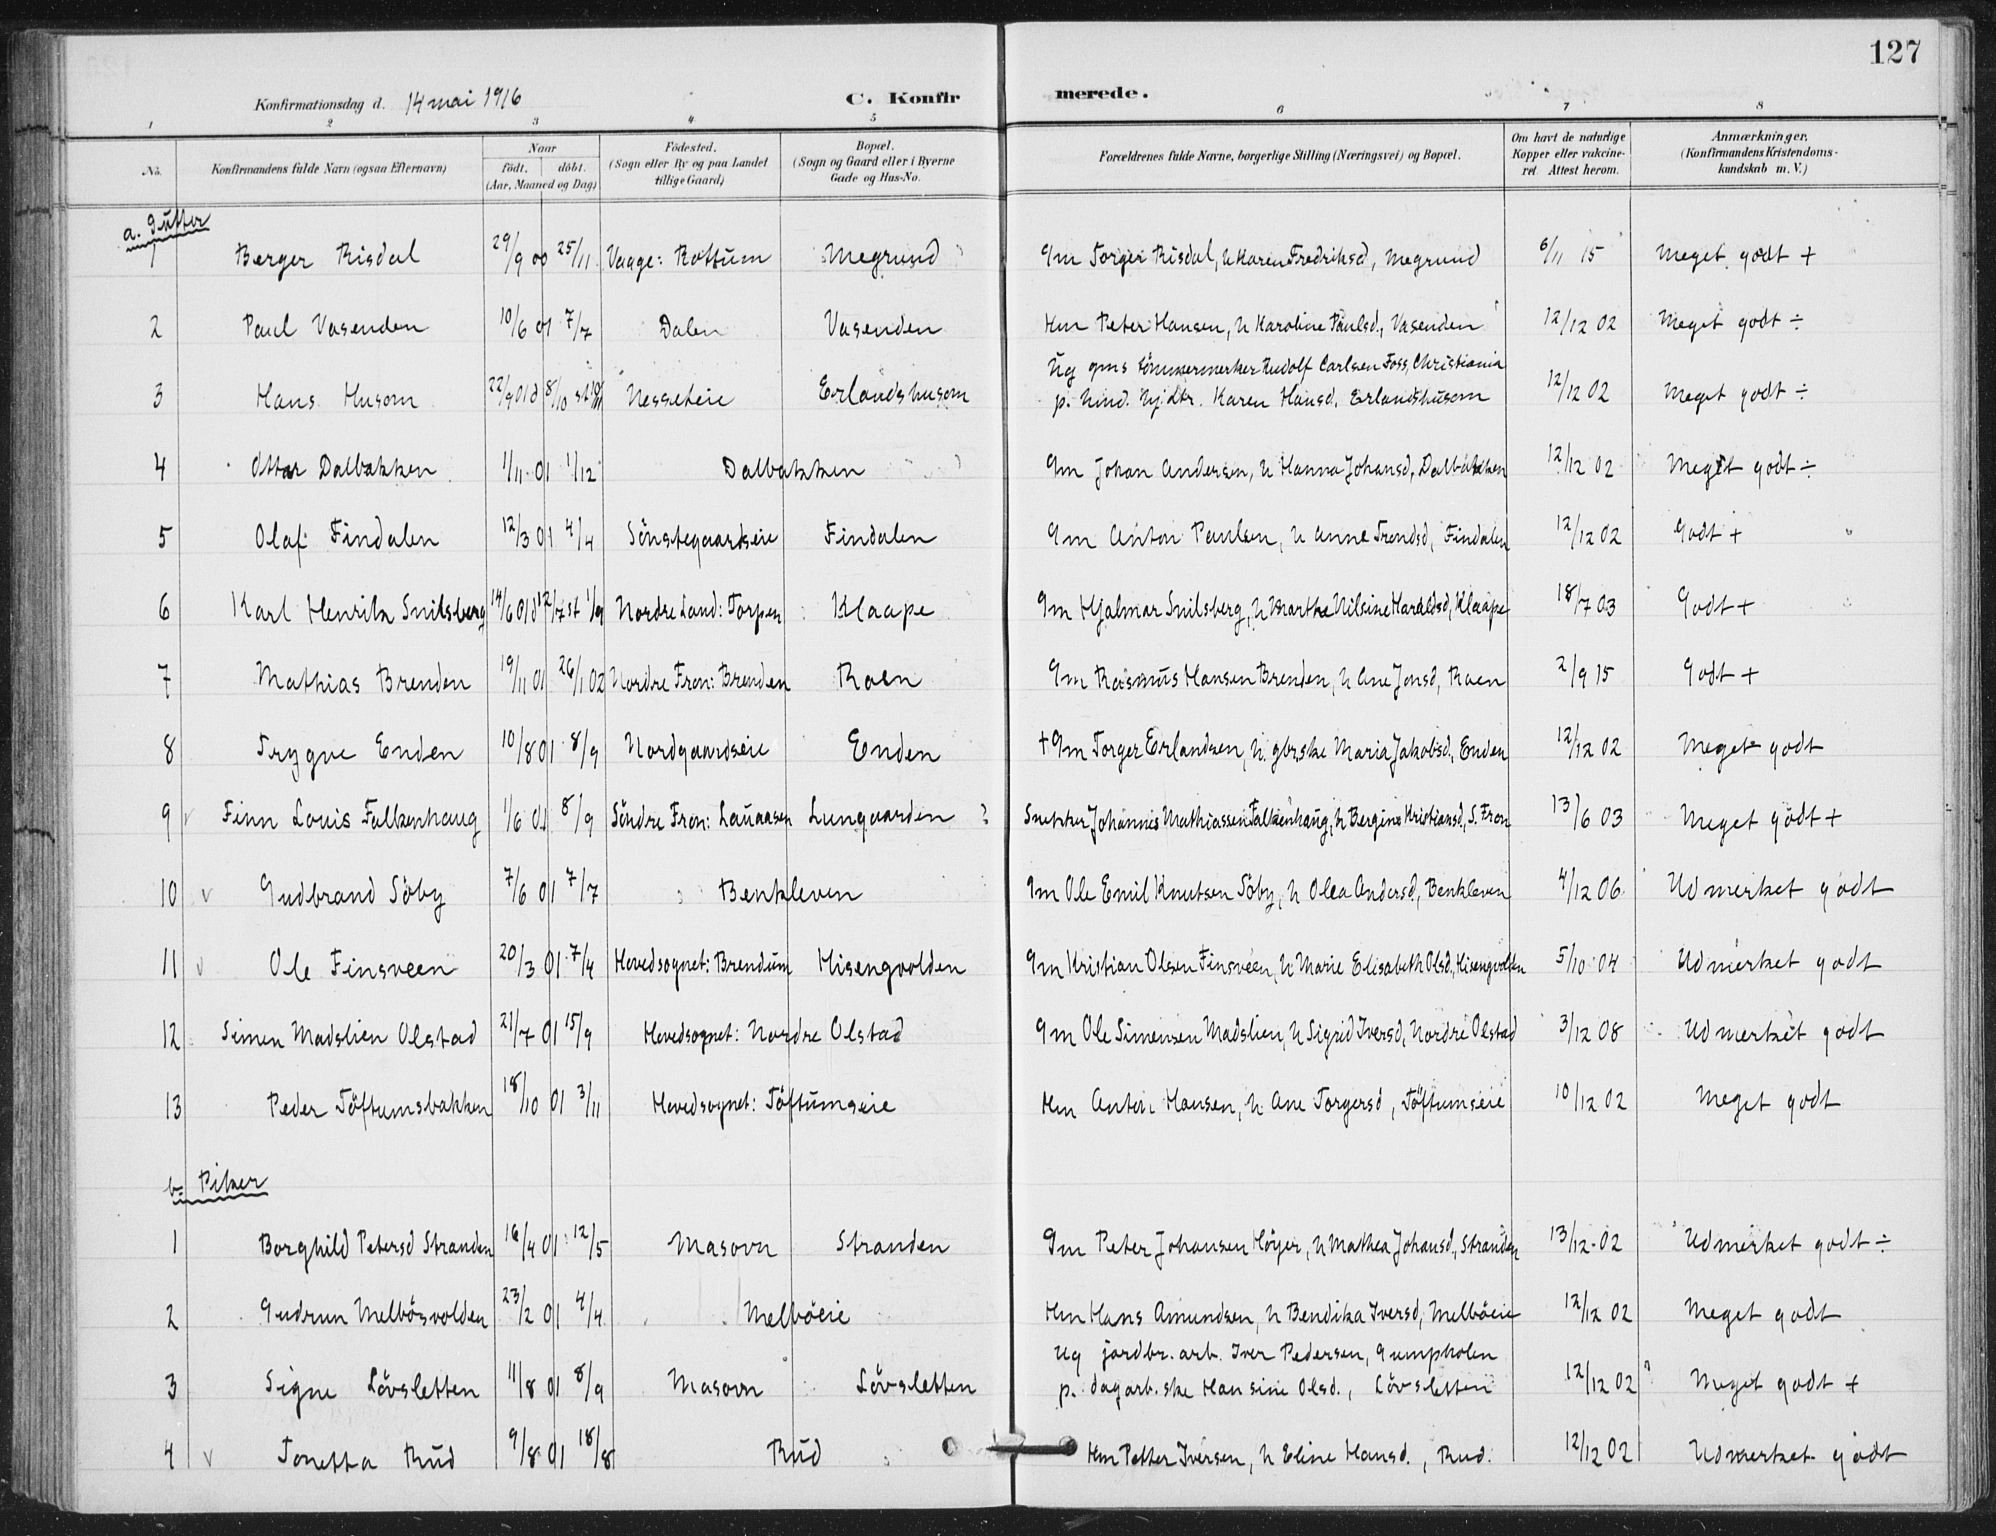 127
Konfirmationsdag d. 14 mai 1916 C. Konfirmerede.
1 2 3 4 5 6 7 8
No. Konfirmandens fulde Navn (ogsaa Efternavn) Naar födt. döbt. (Aar, Maaned og Dag) Födested. (Sogn eller By og paa Landet tillige Gaard) Bopæl. (Sogn og Gaard eller i Byerne Gade og Hus-No. Forældrenes fulde Navne, borgerlige Stilling (Næringsvei) og Bopæl. Om havt de naturlige Kopper eller vakcineret. Attest herom. Anmærkninger. (Konfirmandens Kristendomskundskab m. V.)
a. Gutter
1 Berger Risdal 29/9 00 25/11 Vaage: Rottum Megrund Gm Torger Risdal, h Karen Fredriksd, Megrund 6/11 15 Meget godt +
2 Paul Vasenden 10/6 01 7/7 Dalen Vasenden Hm Peter Hansen, h Karoline Paulsd., Vasenden 12/12 02 Meget godt ÷
Ug gms tömmermerker Rudolf Carlsen Foss, Christiania
3 Hans Husom 22/9 01 d 8/10 st Nesseteie Erlandshusom p. Karen Hansd. Erlandshusom 12/12 02 Meget godt ÷
4 Ottar Dalbakken 1/11 01 1/12 Dalbakken Gm Johan Andersen, h Hanna Johansd, Dalbakken 12/12 02 Meget godt ÷
5 Olaf Findalen 12/3 01 4/4 Sönstegaardseie Findalen Gm Anton Paulsen, h Anne Trondsd, Findalen 12/12 02 Godt +
6 Karl Henrik Snilsberg 14/6 01 d 12/7 st 1/9 Nordre Land: Torpen Klaape Gm Hjalmar Snilsberg, h Marthe Nilsine Haraldsd, Klaape 18/7 03 Godt +
7 Mathias Brenden 19/11 01 26/1 02 Nordre Fron: Brenden Roen Gm Rasmus Hansen Brenden, h Ane Jonsd, Roen 2/9 15 Godt +
8 Trygve Enden 10/8 01 8/9 Nordgaardseie Enden † Gm Torger Erlandsen, h. gbrske Maria Jakobsd, Enden 12/12 02 Meget godt
9 v Finn Louis Falkenhaug 1/6 01 8/9 Söndre Fron: Lauaasen Lungaarden ? Snekker Johannes Mathiassen Falkenhaug, h Bergine Kristiansd, S. Fron 13/6 03 Meget godt +
10 v Gudbrand Söby 7/6 01 7/7 Benkleven Gm Ole Emil Knutsen Söby, h Olea Andersd, Benkleven 4/12 06 Udmerket godt
11 v Ole Finsveen 20/3 01 7/4 Hovedsognet: Brendum Hisengvolden Gm Kristian Olsen Finsveen, h Marie Elisabeth Olsd, Hisengvolden 5/10 04 Udmerket godt
12 Simen Madslien Olstad 21/7 01 15/9 Hovedsognet: Nordre Olstad Gm Ole Simensen Madslien, h Sigrid Iversd, Nordre Olstad 3/12 08 Udmerket godt
13 Peder Töftumsbakken 18/10 01 3/11 Hovedsognet: Töftumseie Hm Anton Hansen, h Ane Torgersd, Töftumseie 10/12 02 Meget godt
b. Piker
1 Borghild Petersd Stranden 16/4 01 12/5 Masovn Stranden Gm Peter Johansen Höyer, h Mathea Johansd, Stranden 13/12 02 Udmerket godt ÷
2 Gudrun Melbösvolden 23/2 01 4/4 Melböeie Hm Hans Amundsen, h Bendika Iversd, Melböeie 12/12 02 Meget godt
Ug jordbr. arb. Iver Pedersen, Gumpholen
3 Signe Lövsletten 11/8 01 8/9 Masovn Lövsletten p. dagarb.ske Hansine Olsd., Lövsletten 12/12 02 Meget godt +
4 v Tonetta Rud 9/8 01 18/8 Rud Hm Petter Iversen, h Eline Hansd., Rud. 12/12 02 Udmerket godt